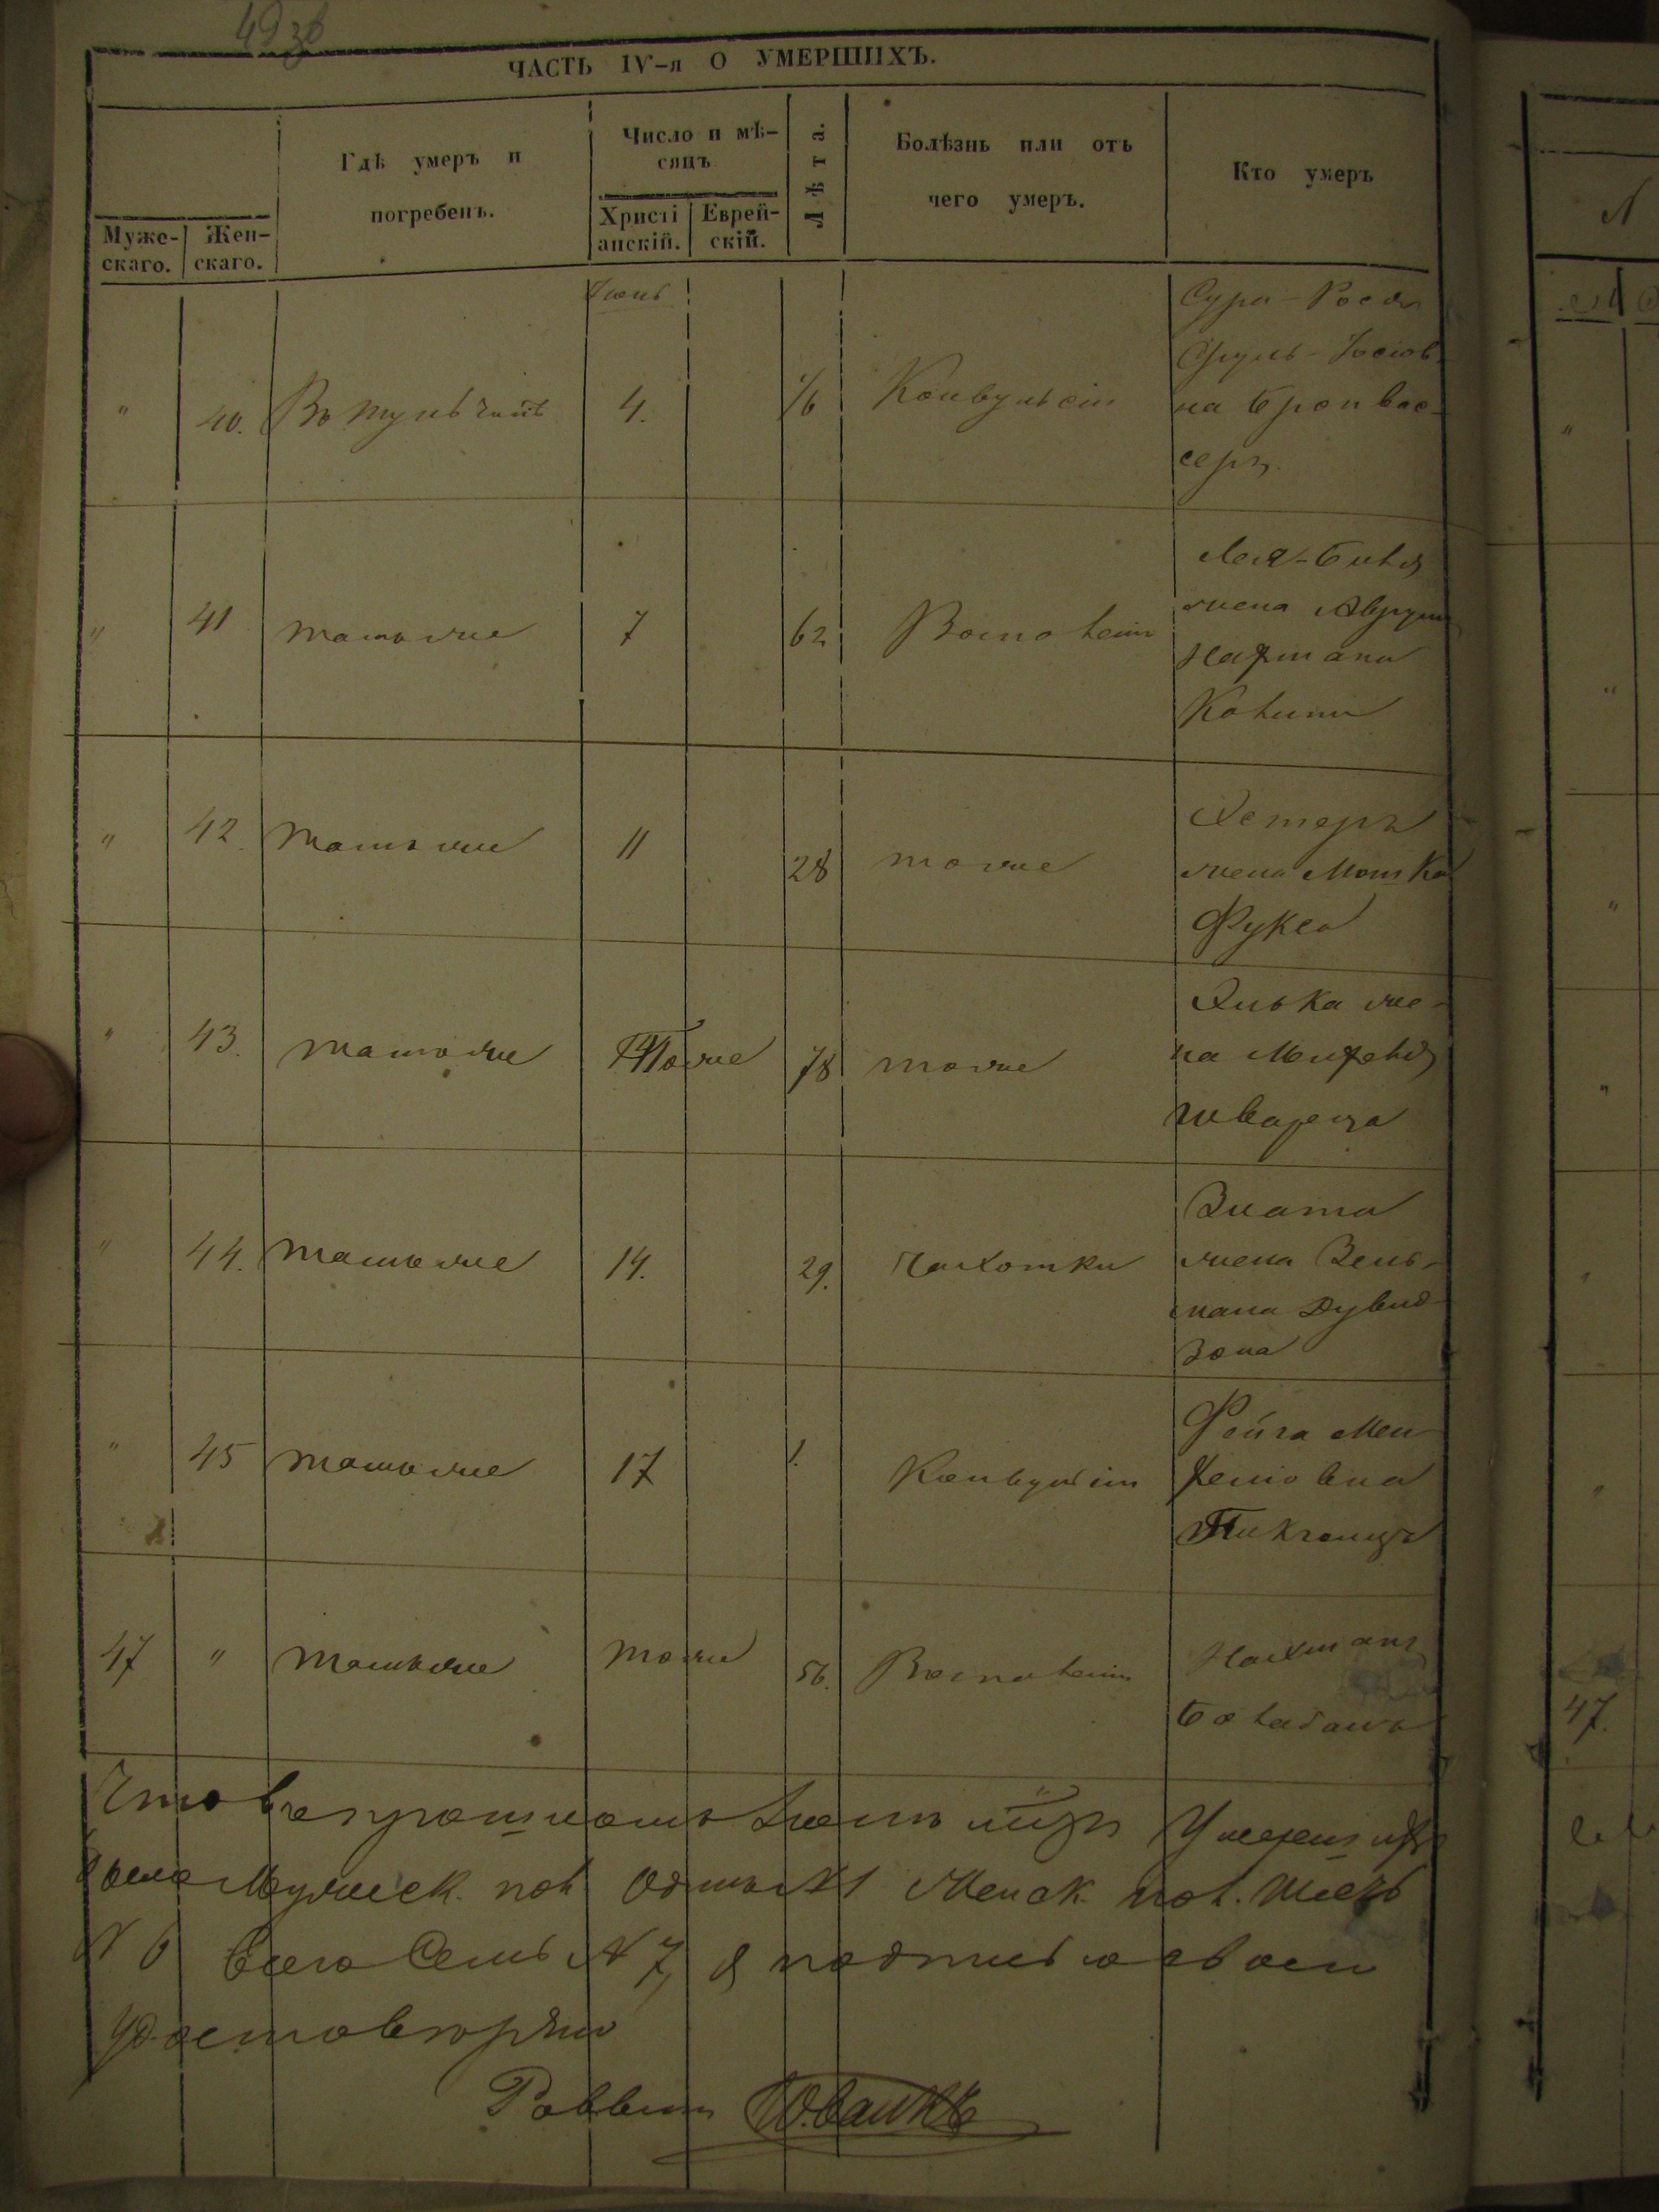 49 зв
ЧАСТЬ IV-я О УМЕРШИХЪ.
Муже-
скаго.
Жен-
скаго.
Гдѣ умеръ и
погребенъ.
Число и мѣ-
сяцъ
Христі
анскій.
Еврей-
скій.
Лѣта.
Болѣзнь или отъ
чего умеръ.
Кто умеръ
Іюнь
" 40. Въ Тульчинѣ 4. 1/6 Конвульсіи
Сура-Рося
Сруль-Іосіов
на Бронвас-
серъ
" 41 тамъ же 7 62 Воспаленія
Лея-Бейля
жена Аврума
Нахмана
" 42. тамъ же 11 28 тоже
Эстеръ
жена Мошка
Фукса
" 43. тамъ же тоже 78 тоже
Элька же-
на
шварца
" 44. тамъ же 14. 29. Чахотки
Злата
жена Зель-
мана Дувид
зона
" 45 тамъ же 17 1. Конвульсіи
Фейга Мен
47 " тамъ же тоже 56. Воспаленія
Нахманъ
Что въ прошломъ Іюнѣ м-цѣ Умершихъ
было Мужеск. пол Одинъ №1 Женск. пол. Шесть
№ 6 Всего Семь № 7, я подписью своей
Удостовѣряю
Раввинъ